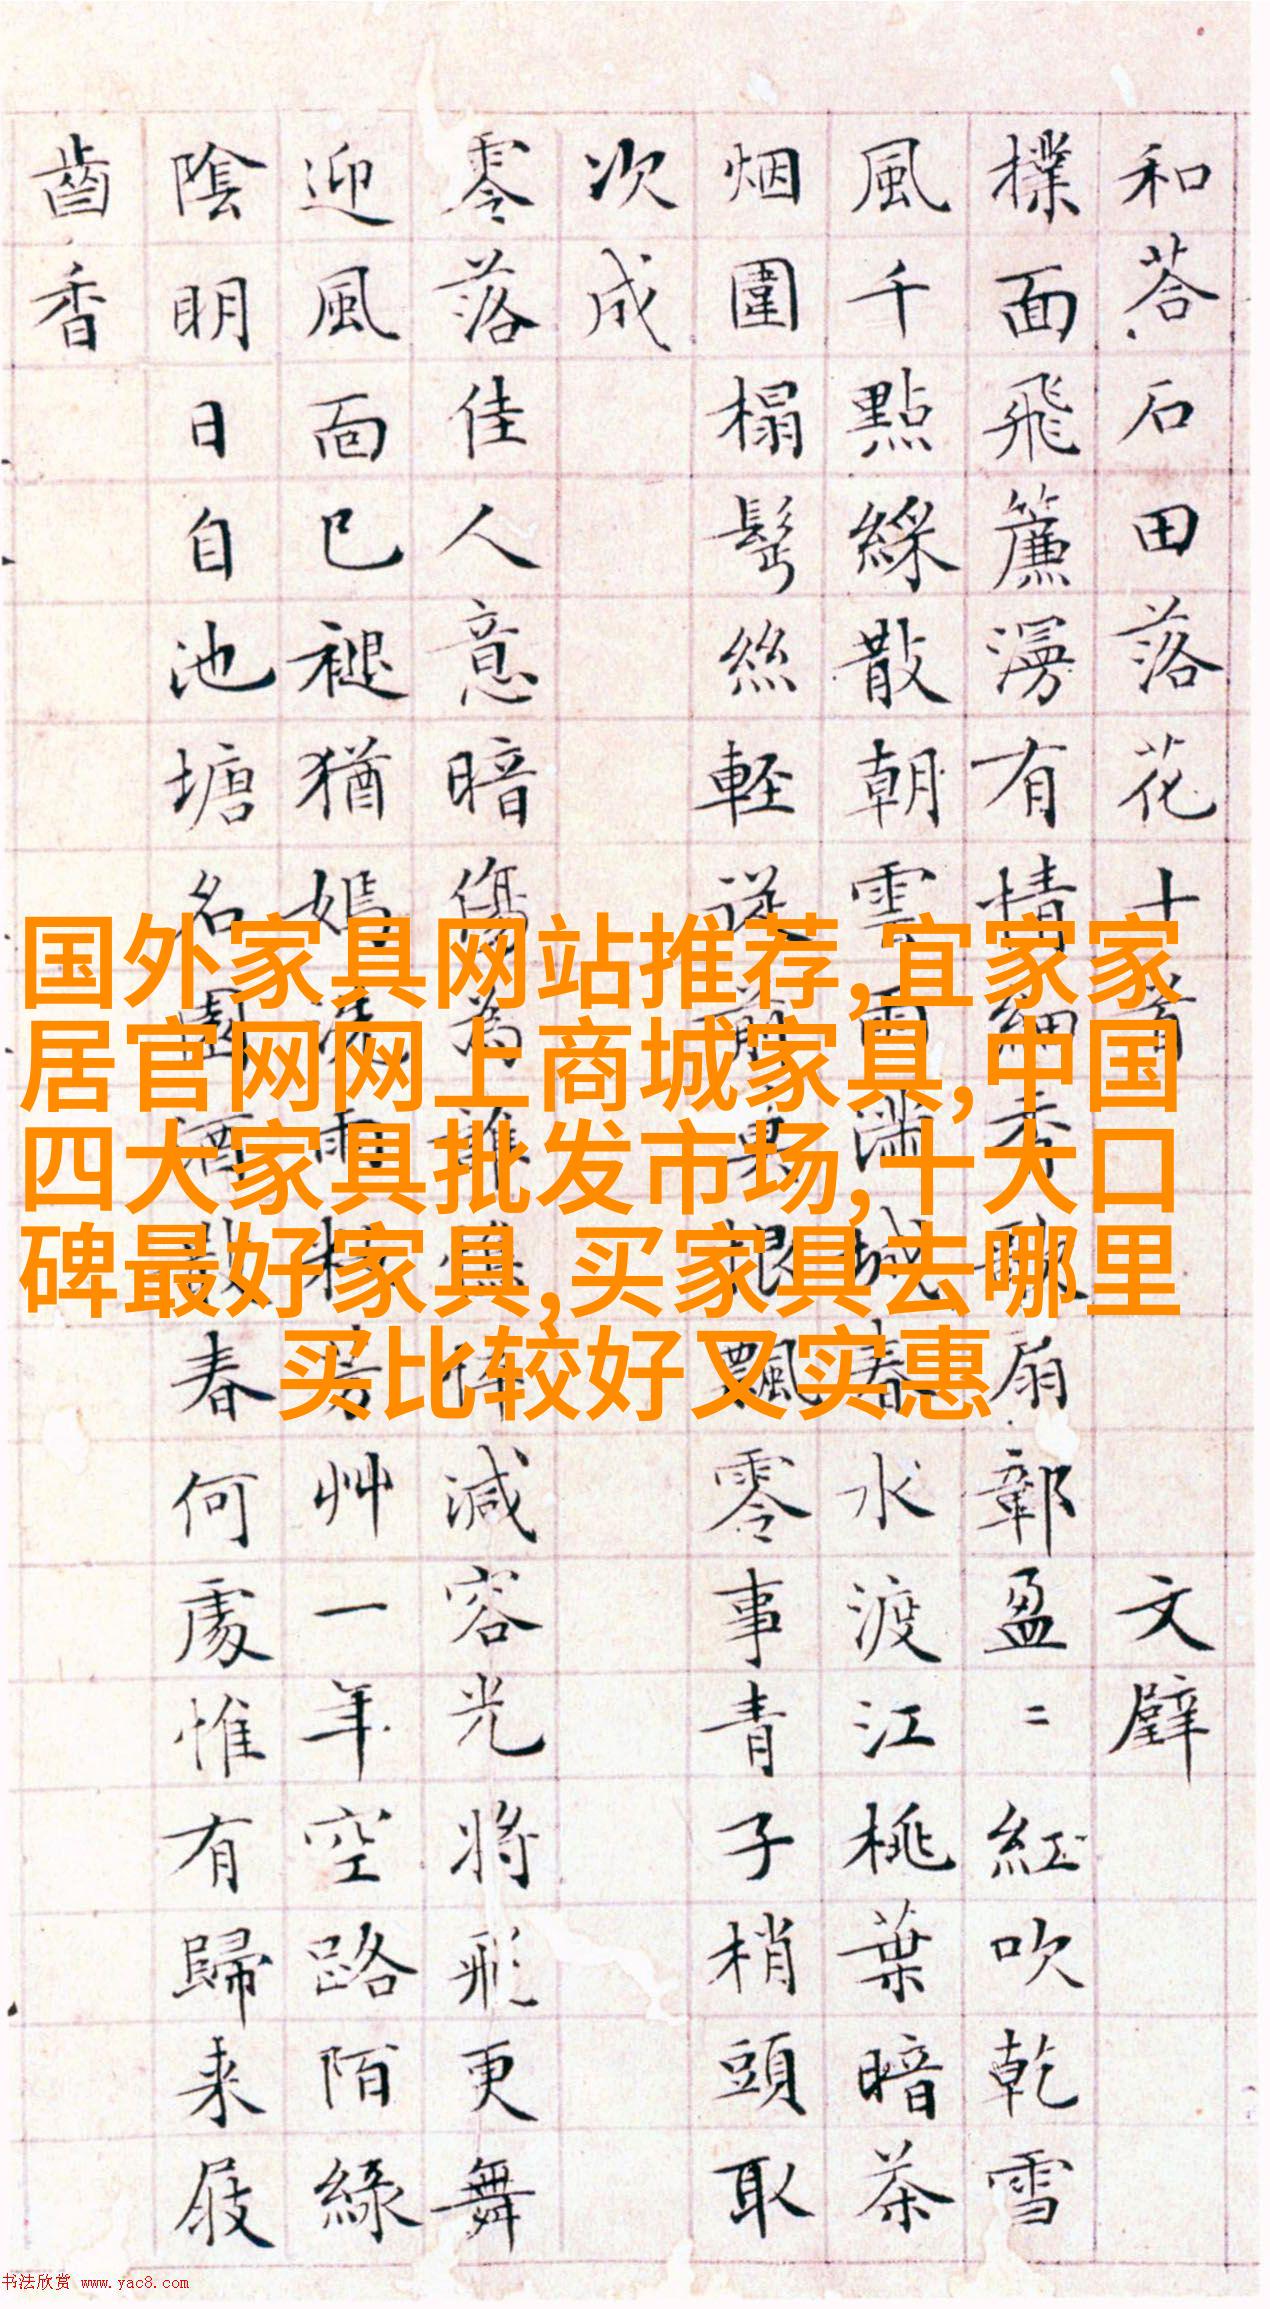 和荅石田落花十首 文璧
撲面飛簾漫有情細香歌扇鄣盈〻紅吹乾雪
風千點綵散朝雲雨滿城春水渡江桃葉暗茶
烟圍榻髩絲輕從前莫恨飄零事青子梢頭取
次成
零落佳人意暗傷為誰憔悴減容光將飛更舞
迎風面已褪猶嫣洗雨粧芳艸一年空路陌綠
陰明日自池塘名園酒散春何處惟有歸来屐
齒香
国外家具网站推荐,宜家家
居官网网上商城家具,中国
四大家具批发市场,十大口
碑最好家具,买家具去哪里
买比较好又实惠
书法欣赏 www.yac8.com